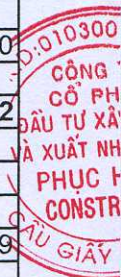 0
D:010300
CÔNG
CỔ PH
2
ĐẦU TƯ XÂ
VÀ XUẤT NH
PHỤC H
CONSTR
9
CẦU GIẤY